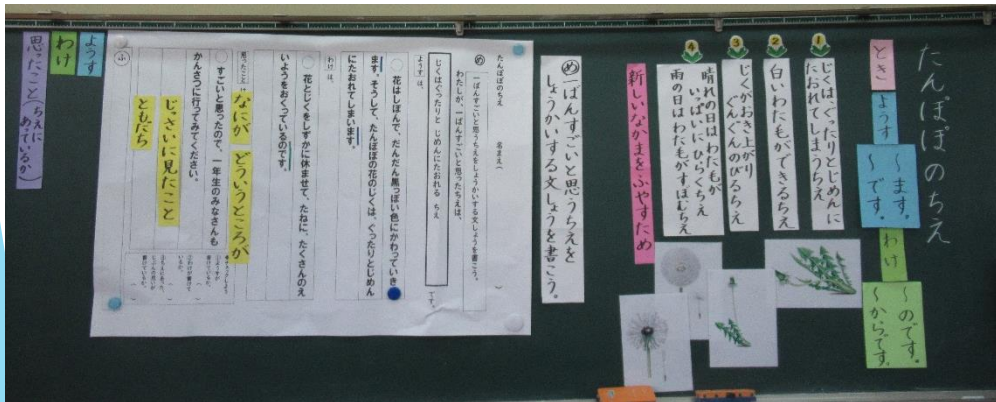 たんぽぽのちえ
とき
ようす
～ます。
～です。
わけ
～のです。
～からです。
1
じくは ぐったりとじめんに
たおれてしまうちえ
2
白いわた毛ができるちえ
3
じくがおき上がり
ぐんぐんのびるちえ
4
晴れの日はわた毛が
いっぱいにひらくちえ
雨の日はわた毛がすぼむちえ
新しいなかまをふやすため
め 一ばんすごいと思うちえを
しょうかいする文しょうを書こう。
たんぽぽのちえ 名まえ( )
め 一ばんすごいと思うちえをしょうかいする文しょうを書こう。
わたしが、一ばんすごいと思ったちえは、
じくはぐったりと じめんにたおれる ちえ
です。
ようす は、
花はしぼんで、だんだん黒っぽい色にかわっていき
ます。そうして、たんぽぽの花のじくは、ぐったりとじめん
にたおれてしまいます。
わけ は、
花とじくをしずかに休ませて、たねに、たくさんのえ
いようをおくっているのです。
思ったこと は
なにが どういうところが
すごいと思ったので、一年生のみなさんも
かんさつに行ってみてください。
じっさいに見たこと
ともだち
ふ
ようす
わけ
思ったこと(ちえに
あっているか)